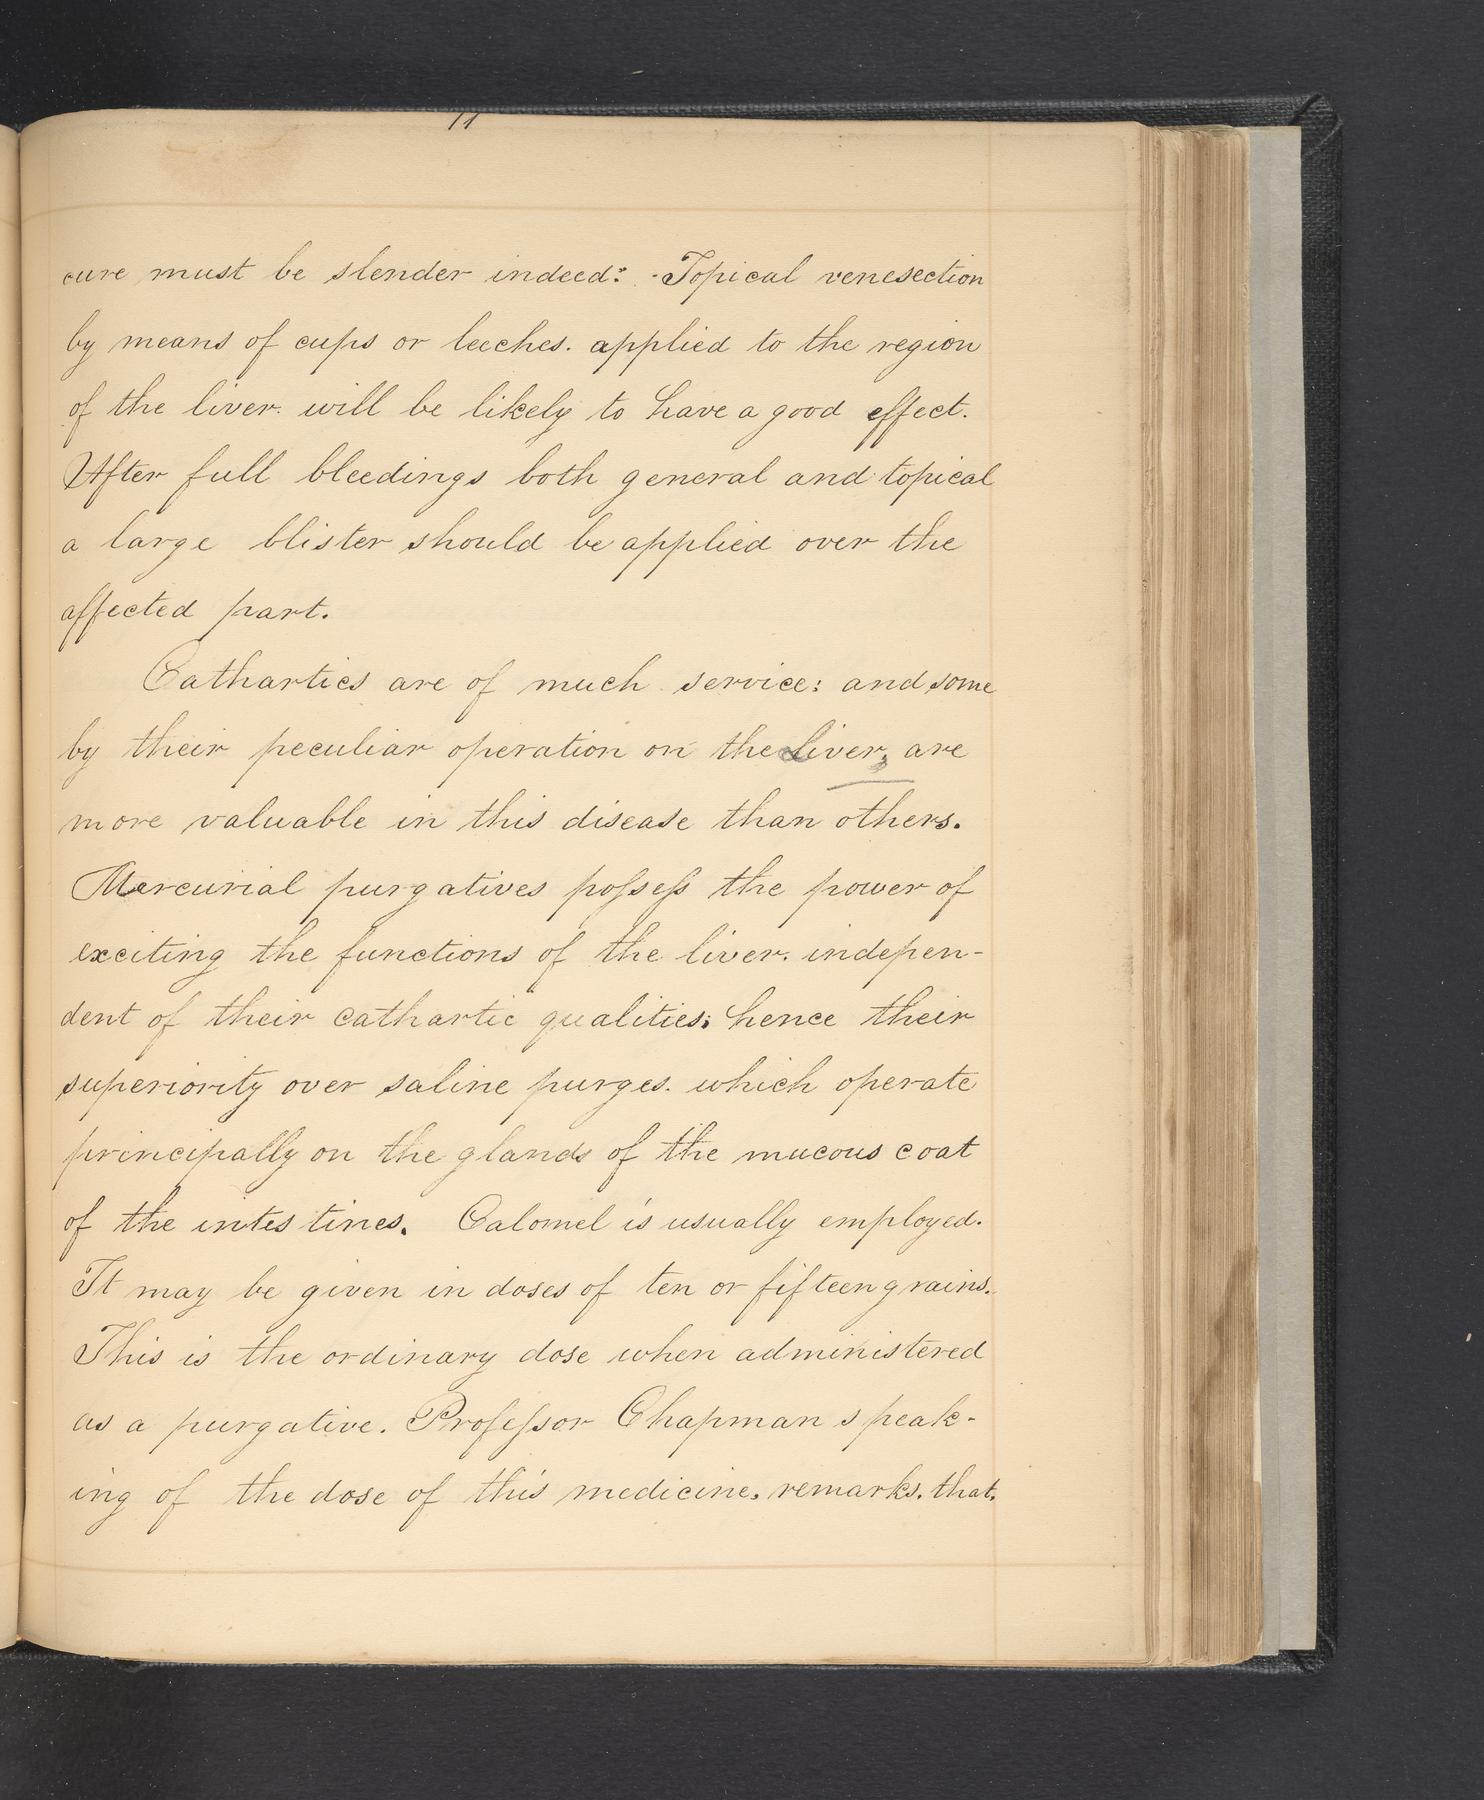 11
cure must be slender indeed: Topical venesection
by means of cups or leeches. applied to the region
of the liver. will be likely to have a good effect.
After full bleedings both general and topical
a large blister should be applied over the
affected part.
Cathartics are of much service: and some
by their peculiar operation on the Liver, are
more valuable in this disease than others.
Mercurial purgatives poſseſs the power of
exciting the functions of the liver. indepen-
dent of their cathartic qualities; hence their
superiority over saline purges. which operate
principally on the glands of the mucous coat
of the intestines. Calomel is usually employed.
It may be given in doses of ten or fifteen grains.
This is the ordinary dose when administered
as a purgative. Profeſsor Chapman speak-
ing of the dose of this medicine, remarks. that.